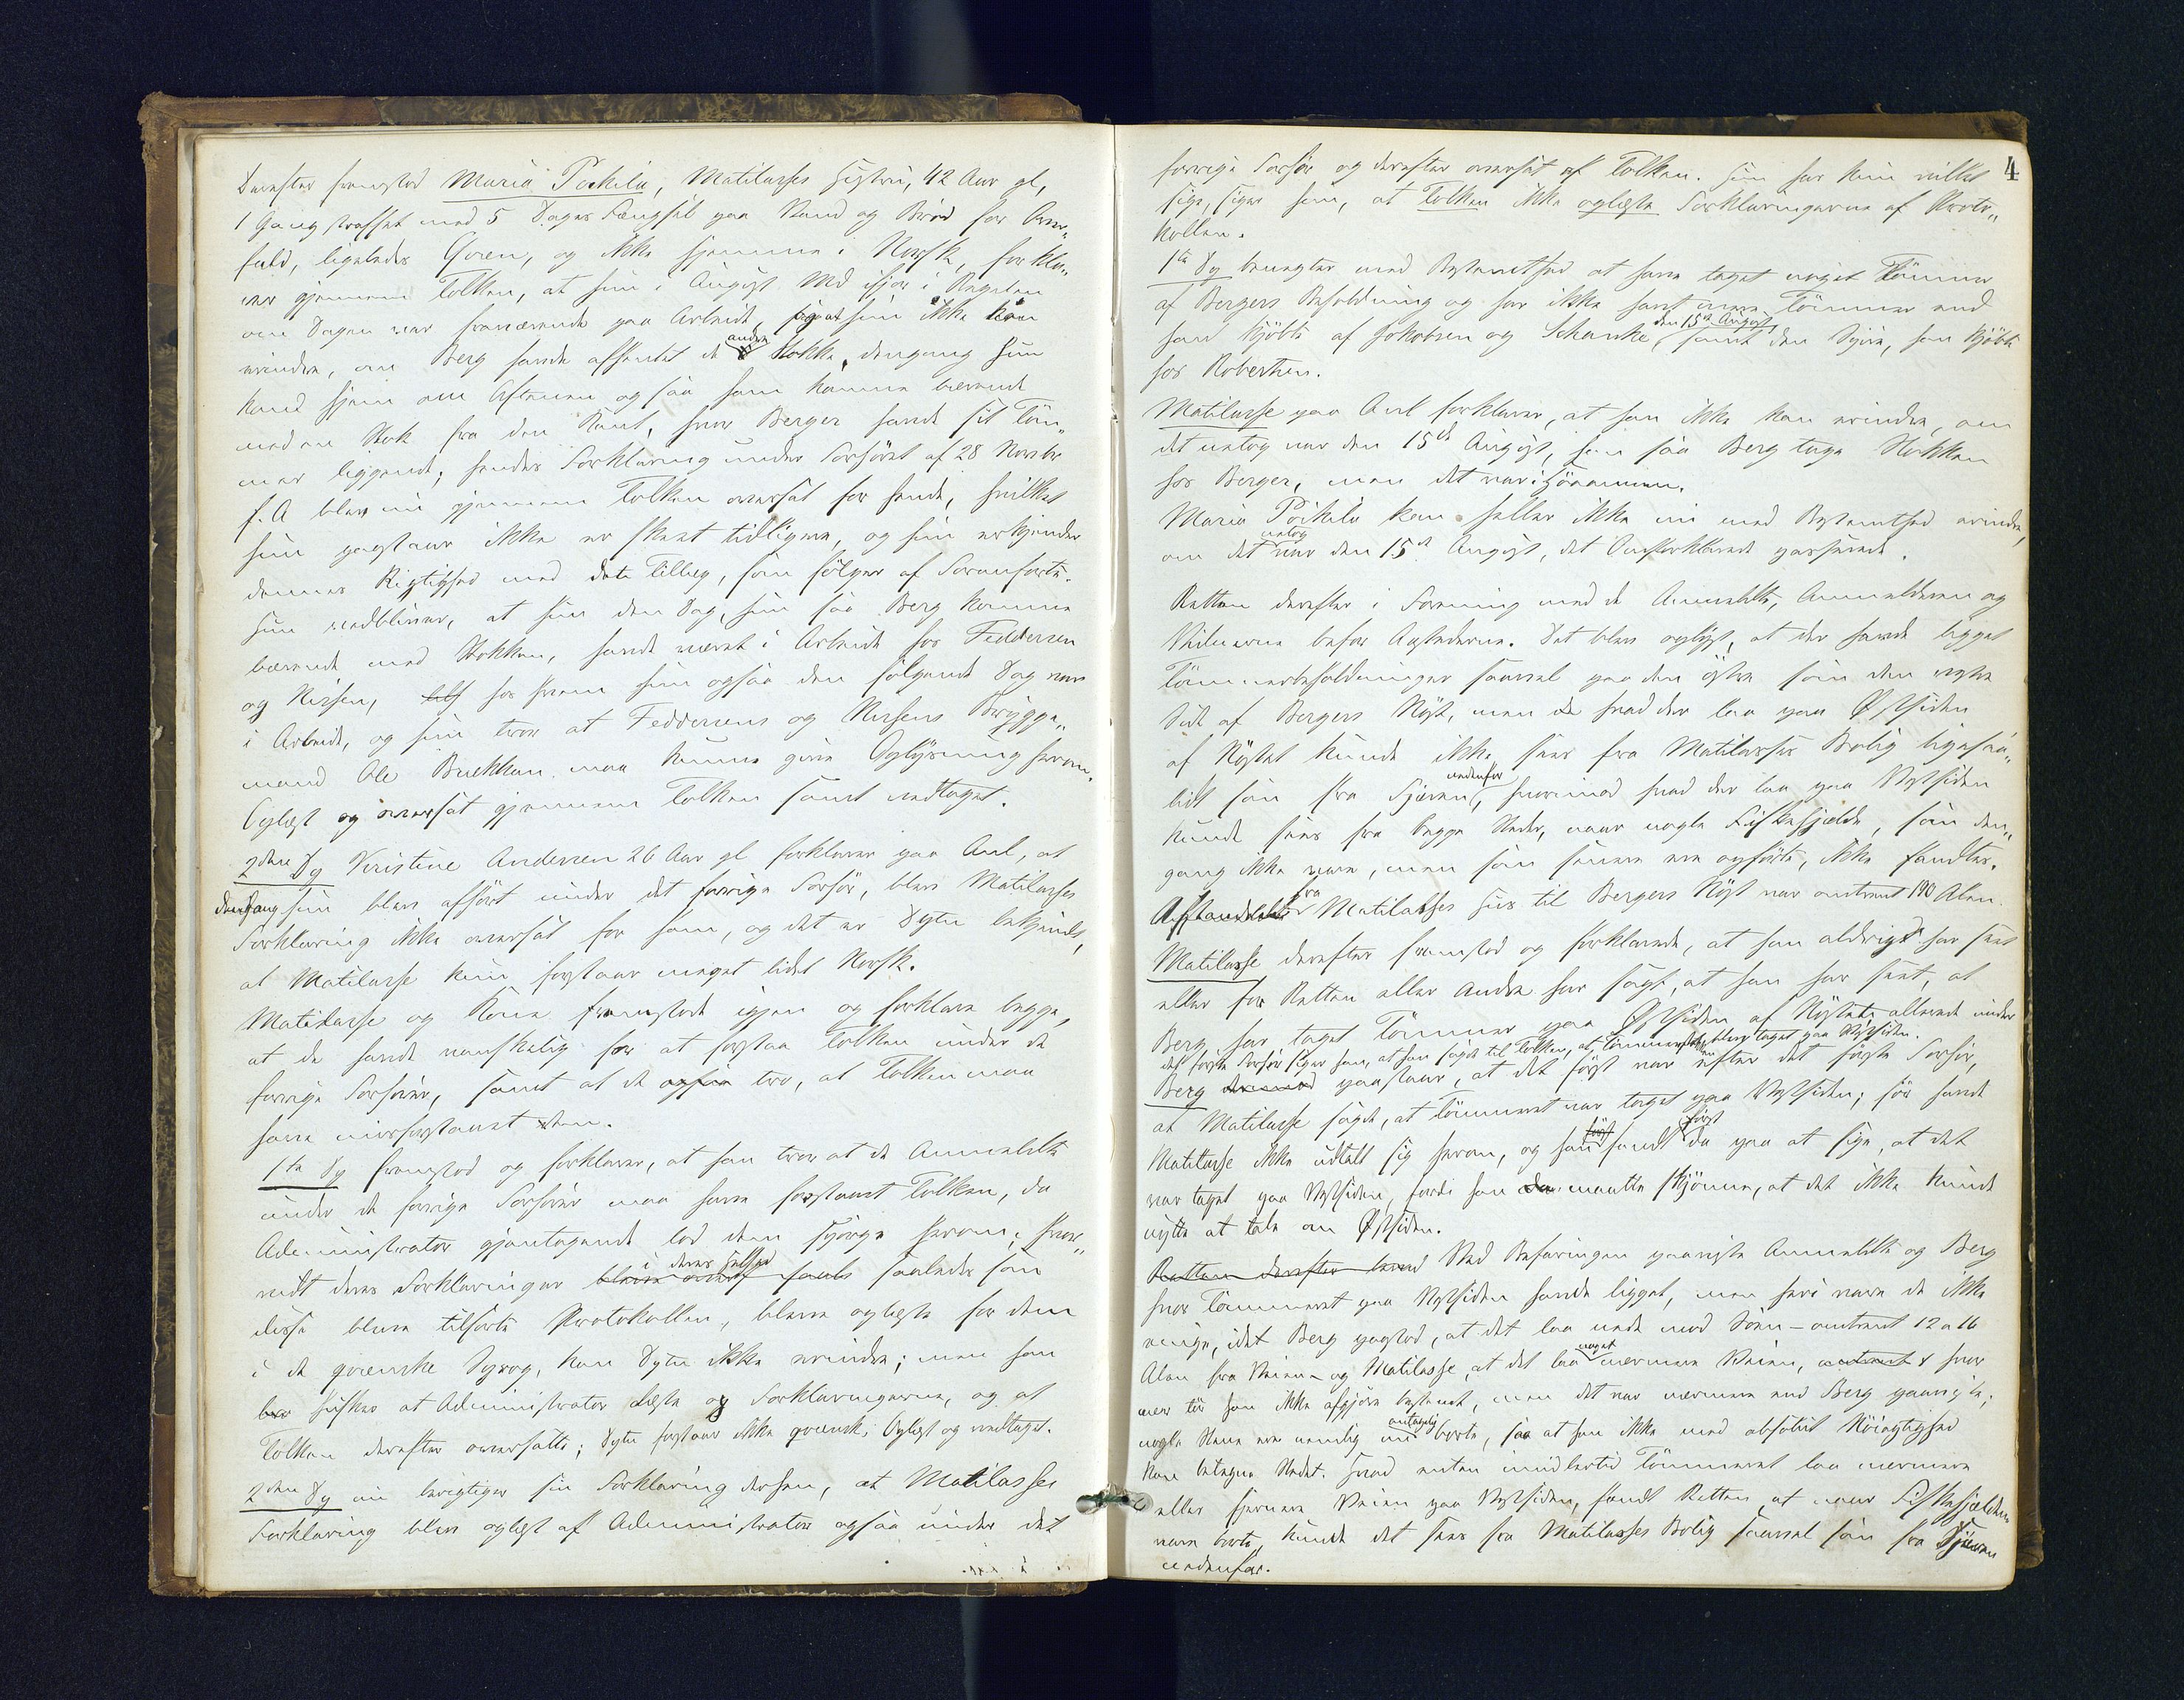 Derefter fremstod Maria Pokila, Matilasses Hustru, 42 Aar gl,
1 Gang straffet med 5 Dages Fængsel paa Vand og Brød for Over„
fald, ligeledes Qvæn, og ikke hjemme i Norsk, forkla„
rer gjennem Tolken, at hun i August Md ifjor i Regelen
om Dagen var fraværende paa Arbeide, saa at hun ikke kan
erindre, om Berg havde afhentet de andre Stokke, dengang hun
kom hjem om Aftenen og saa ham komme bærende
med en Stok fra den Kant, hvor Berger havde sit Töm„
mer liggende; hendes Forklaring under Forhöret af 28 Novbr
f. A blev nu gjennem Tolken oversat for hende, hvilket
hun paastaar ikke er skeet tidligere, og hun erkjender
dennes Rigtighed med dette Tillæg, som fölger af Foranförte.
Hun vedbliver, at hun den Dag, hun saa Berg komme
bærende med Stokken, havde været i Arbeide hos Feddersen
og Nissen, hos hvem hun ogsaa den fölgende Dag var
i Arbeide, og hun tror at Feddersens og Nissens Brygge„
mand Ole Brækkan maa kunne give Oplysning herom.
Oplæst og oversat gjennem Tolken samt vedtaget.
2den Vg Kristine Andersen 26 Aar gl forklarer paa Anl, at
dengang hun blev afhört under det forrige Forhör, blev Matilasses
Forklaring ikke oversat for ham, og det er Vgtn bekjendt,
at Matilasse kun forstaar meget lidet Norsk.
Matilasse og Kone fremstod igjen og forklare begge,
at de havde vanskelig for at forstaa Tolken under de
forrige Forhörer, samt at de ogsaa tro, at Tolken maa
have misforstaaet dem.
1te Vg fremstod og forklarer, at han tror at de Anmeldte
under de forrige Forhörer maa have forstaaet Tolken, da
Administrator gjentagende lod dem spörge herom; hvor„
vidt deres Forklaringer i deres Helhed saaledes som
disse bleve tilförte Protokollen, bleve oplæste for dem
i det qvænske Sprog, kan Vgtn ikke erindre; men han
husker at Administrator læste op Forklaringerne, og at
Tolken derefter oversatte; Vgtn forstaar ikke qvænsk. Oplæst og vedtaget.
2den Vg nu berigtiger sin Forklaring derhen, at Matilasses
Forklaring blev oplæst af Administrator ogsaa under det
4
forrige Forhör og derefter oversat af Tolken. Hun har kun villet
sige, siger hun, at Tolken ikke oplæste Forklaringerne af Proto„
kollen.
1te Vg benegter med Bestemthed at have taget noget Tömmer
af Bergers Beholdning og har ikke havt mere Tömmer end
han kjöbte af Jakobsen og Schanke den 15de August, samt den Spire, han kjöbte
hos Robertsen.
Matilasse paa Anl forklarer, at han ikke kan erindre, om
det netop var den 15de August, han saa Berg tage Stokken
hos Berger, men det var i Sommer.
Maria Poikila kan heller ikke nu med Bestemthed erindre,
om det netop var den 15de August, det Omforklarede passerede.
Retten derefter i Forening med de Anmeldte, Anmelderen og
Vidnerne befor Aastederne. Det blev oplyst, at der havde ligget
Tömmerbeholdninger saavel paa den östre som den vestre
Side af Bergers Nöst, men hvad der laa paa Østsiden
af Nöstet kunde ikke sees fra Matilasses Bolig ligesaa„
lidt som fra Fjæren nedenfor, hvorimod hvad der laa paa Vestsiden
kunde sees fra begge Steder, naar nogle Fiskehjelde, som den„
gang ikke vare, men som senere ere opförte, ikke fandtes.
Afstanden fra Matilasses Hus til Bergers Nöst var omtrent 190 Alen.
Matilasse derefter fremstod og forklarede, at han aldrig har sagt
eller for Retten eller Andre har sagt, at han har seet, at
Berg har taget Tömmer paa Østsiden af Nöstet; allerede under
det förste Forhör siger han, at han sagde til Tolken, at Tömmerstokken blev taget paa Vestsiden.
Berg paastaar, at det först var efter det förste Forhör,
at Matilasse sagde, at Tömmeret var taget paa Vestsiden; för havde
Matilasse ikke udtalt sig herom, og han fandt först da paa at sige, at det
var taget paa Vestsiden, fordi han maatte skjönne, at det ikke kunde
nytte at tale om Østsiden.
Retten derefter Ved Befaringen paaviste Anmeldte og Berg
hvor Tömmeret paa Vestsiden havde ligget, men heri vare de ikke
enige, idet Berg paastod, at det laa nede mod Söen – omtrent 12 a 16
Alen fra Veien – og Matilasse, at det laa noget nærmere Veien, hvor
mer tör han ikke afgjöre bestemt, men det var nærmere end Berg paaviste,
nogle Stene ere nemlig antagelig nu borte, saa at han ikke med absolut Nöiagtighed
kan betegne Stedet. Hvad enten imidlertid Tömmeret laa nærmere
eller fjernere Veien paa Vestsiden, fandt Retten, at naar Fiskehjeldene
vare borte, kunde det sees fra Matilasses Bolig saavel som fra Fjæren
nedenfor.